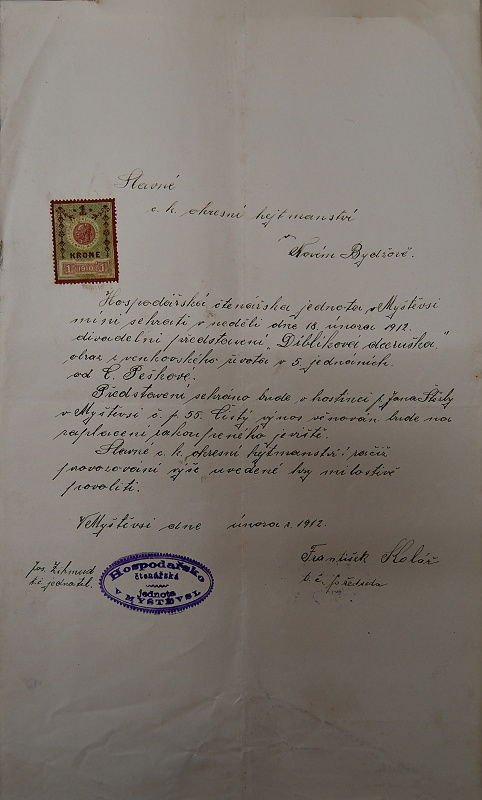 Slavné
c. k. okresní hejtmanství
v
Novém Bydžově.
1
KRONE
1 1910 1
Hospodářská čtenářská jednota v Myštěvsi
míní sehrati v neděli dne 18. února 1912.
divadelní představení „Diblíkova dceruška"
obraz z venkovského života v 5. jednáních
od E. Peškové.
Představení sehráno bude v hostinci p. Jana
v Myštěvsi č. p. 55. Čistý výnos věnován bude na
zaplacení zakoupeného jeviště.
Slavné c. k. okresní hejtmanství račiž
provozování výše uvedené hry milostivě
povoliti.
V Myštěvsi dne února r. 1912.
Jos.
t. č. jednatel.
Hospodářsko
čtenářská
jednota
V MYŠTĚVSI
František Kolář
t. č. předseda